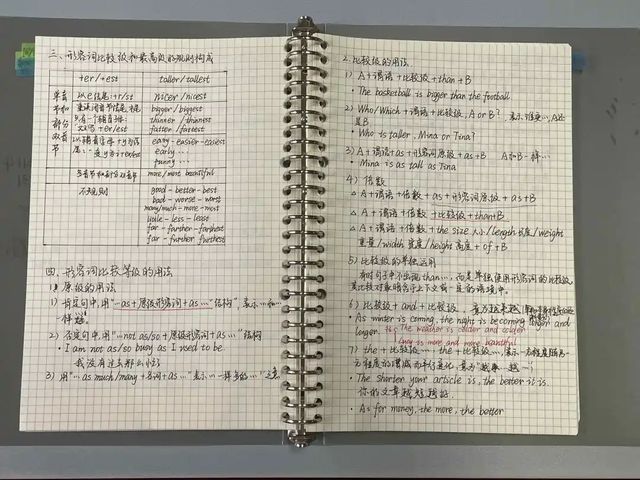 三、形容词比较级和最高级的规则构成
+er/+est taller/tallest
单音节和部分双音节
以e结尾:+r/st nicer/nicest
bigger/biggest
thinner/thinnest
+er/est fatter/fattest
easy-easier-easiest
early...
funny...
多音节和部分双音节 more/most beautiful
不规则 good-better-best
bad-worse-worst
many/much-more-most
little-less-least
far-farther-farthest
far-further furthest
四、形容词比较等级的用法
1) 肯定句中,用"...as+原级形容词+as..."结构,表示...和...
一样
2) 否定句中,用"...not as/so+原级形容词+as..."结构
· I am not as/so busy as I used to be
我没有过去那么忙
3) 用"...as much/many+名词+as..."表示...一样多的..."
2. 比较级的用法
1) A+谓语+比较级+than+B
· The basketball is bigger than the football.
2) Who/Which+谓语+比较级, A or B? 表示
是B
· Who is taller, Mina or Tina?
3) A+谓语+as+形容词原级+as+B A和B一样...
· Mina is as tall as Tina
4) 倍数
△ A+谓语+倍数+as+形容词原级+as+B
△ A+谓语+倍数+比较级+than+B
△ A+谓语+倍数+the size大小/length长度/weight
重量/width宽度/height高度+of+B
5) 比较级的单独运用
有时句子中不出现than...,而是单独使用形容词的比较级,
其比较对象暗含于上下文或一定的语境中。
6) 比较级+and+比较级, 意为越来越
· As winter is coming, the night is becoming longer and
longer. The weather is colder and colder
is more and more beautiful
7) the+比较级...the+比较级...,表示一方程度随另
一方程度的增减而平行变化,意为"越...越..."
· The shorter your article is, the better it is.
你的文章越短越好
· As for money, the more, the better